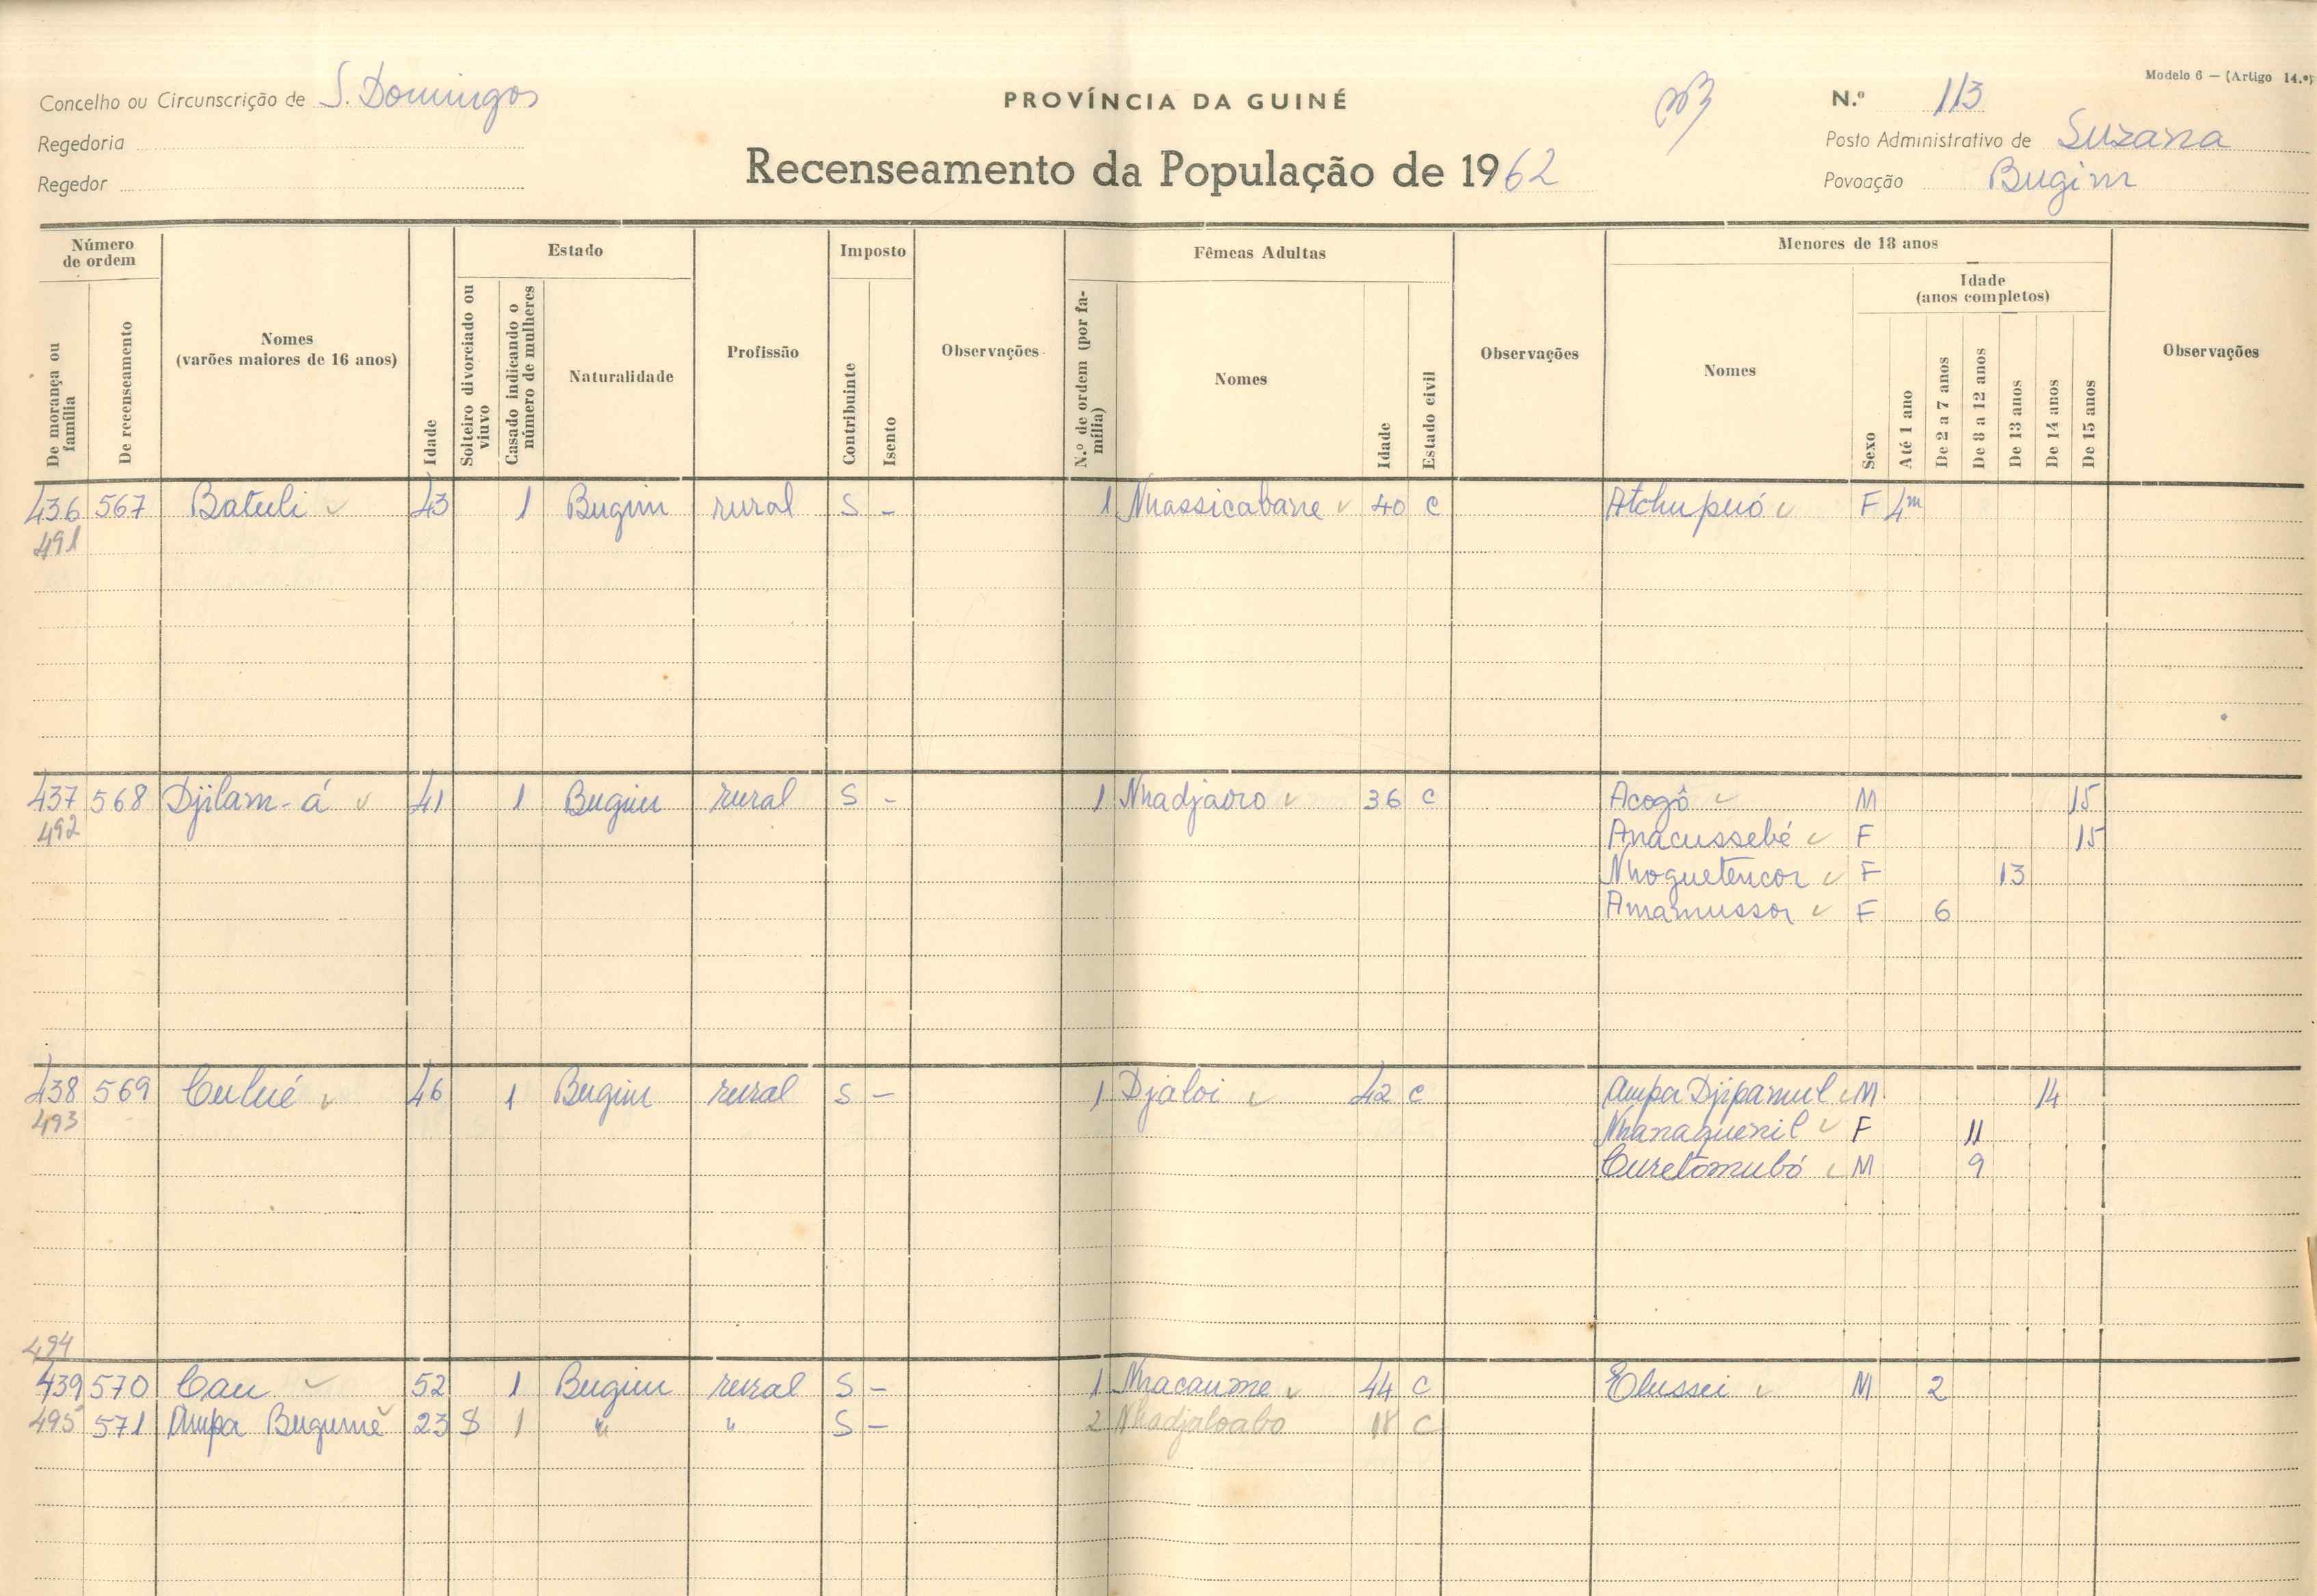 Modelo 6 — (Artigo 14.º)
Concelho ou Circunscrição de S. Domingos
PROVÍNCIA DA GUINÉ
N.º 113
Regedoria
Posto Administrativo de Suzana
Regedor
Recenseamento da População de 1962
Povoação Bugim
Número de ordem
De morança ou família
De recenseamento
Nomes
(varões maiores de 16 anos)
Idade
Estado
Solteiro divorciado ou viuvo
Casado indicando o número de mulheres
Naturalidade
Profissão
Imposto
Contribuinte
Isento
Observações
Fêmeas Adultas
N.º de ordem (por família)
Nomes
Idade
Estado civil
Observações
Menores de 18 anos
Nomes
Sexo
Idade
(anos completos)
Até 1 ano
De 2 a 7 anos
De 8 a 12 anos
De 13 anos
De 14 anos
De 15 anos
Observações
436 567 Batuli 43 1 Bugim rural S - 1 Nhassicabane 40 C Atchupuó F 4m
491
437 568 Djilam-á 41 1 Bugim rural S - 1 Nhadjaoro 36 C Acogô M 15
492 Anacussebé F 15
Nhoguetencor F 13
Amamussor F 6
438 569 Culué 46 1 Bugim rural S - 1 Djaloi 42 C Ampa Djipamul M 14
493 Nhanaguenil F 11
Curetomubó M 9
494
439 570 Cau 52 1 Bugim rural S - 1 Nhacaume 44 C Elussei M 2
495 571 Ampa Bugumê 23 S 1 " " S - 2 Nhadjaloabo 18 C